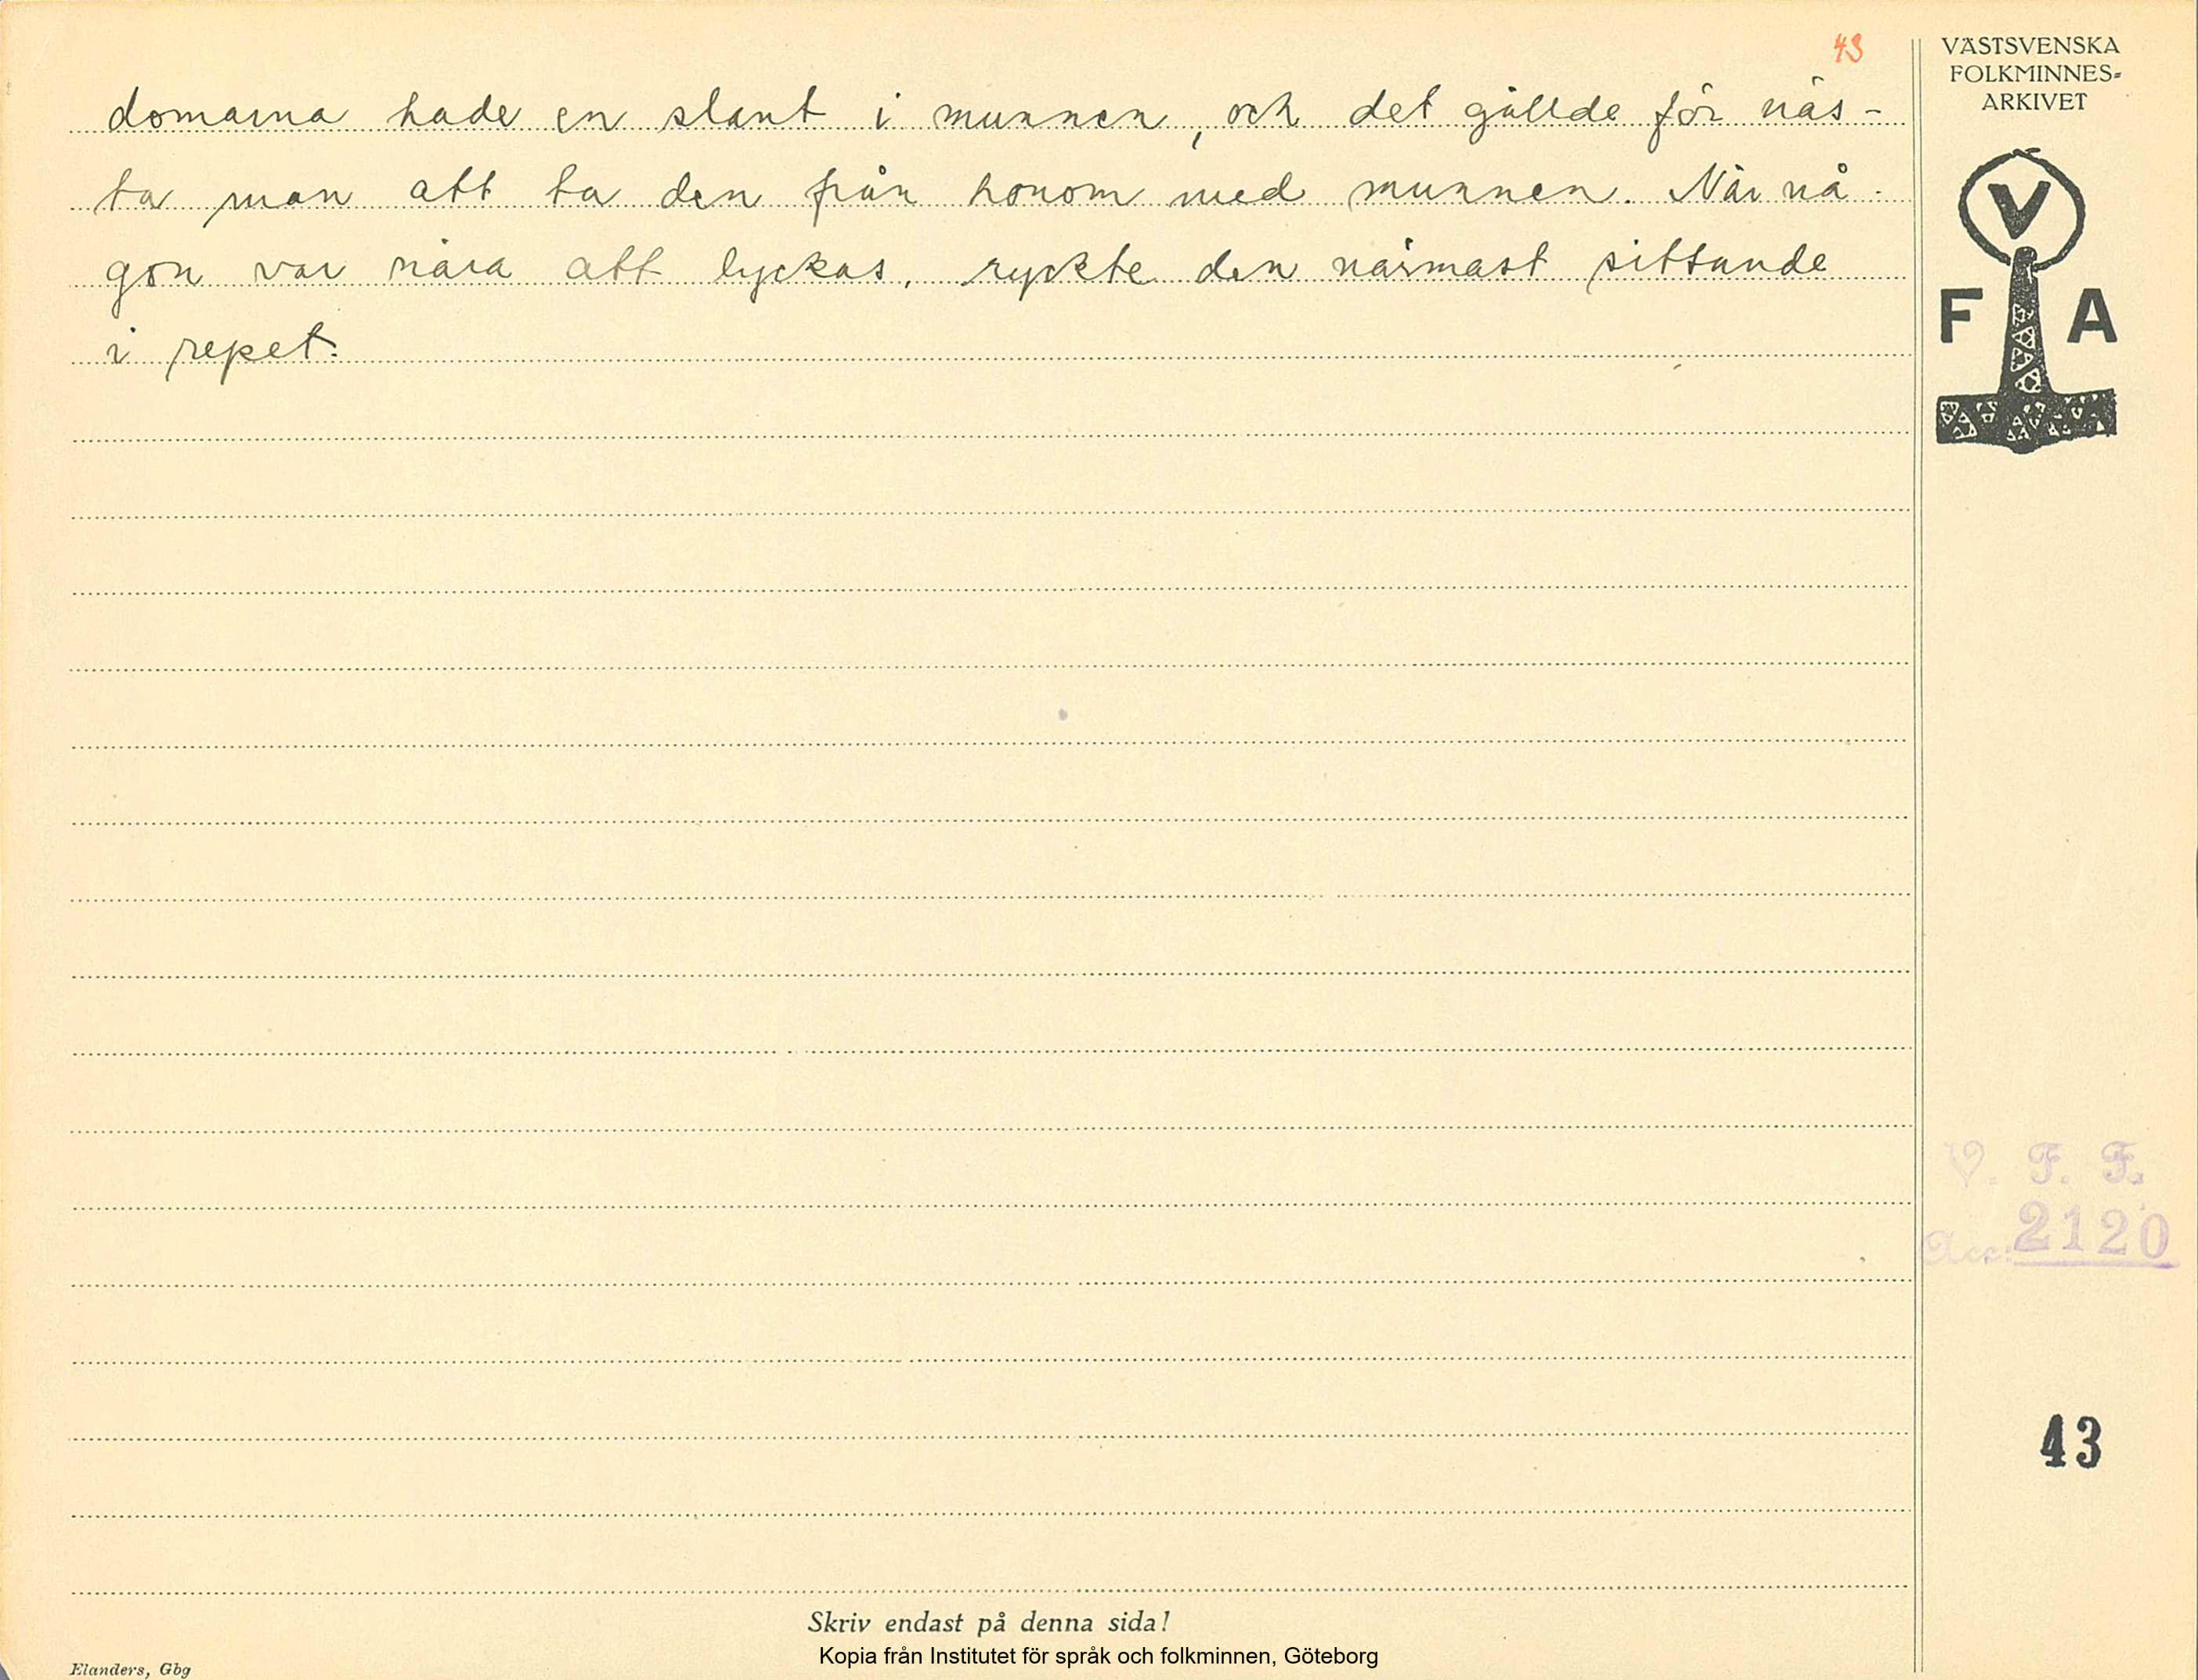 43
domarna hade en slant i munnen, och det gällde för näs-
ta man att ta den från honom med munnen. När nå-
gon var nära att lyckas, ryckte den närmast sittande
i repet.
VÄSTSVENSKA
FOLKMINNES-
ARKIVET
V
F A
V. F. F.
Acc: 2120
43
Skriv endast på denna sida!
Kopia från Institutet för språk och folkminnen, Göteborg
Elanders, Gbg